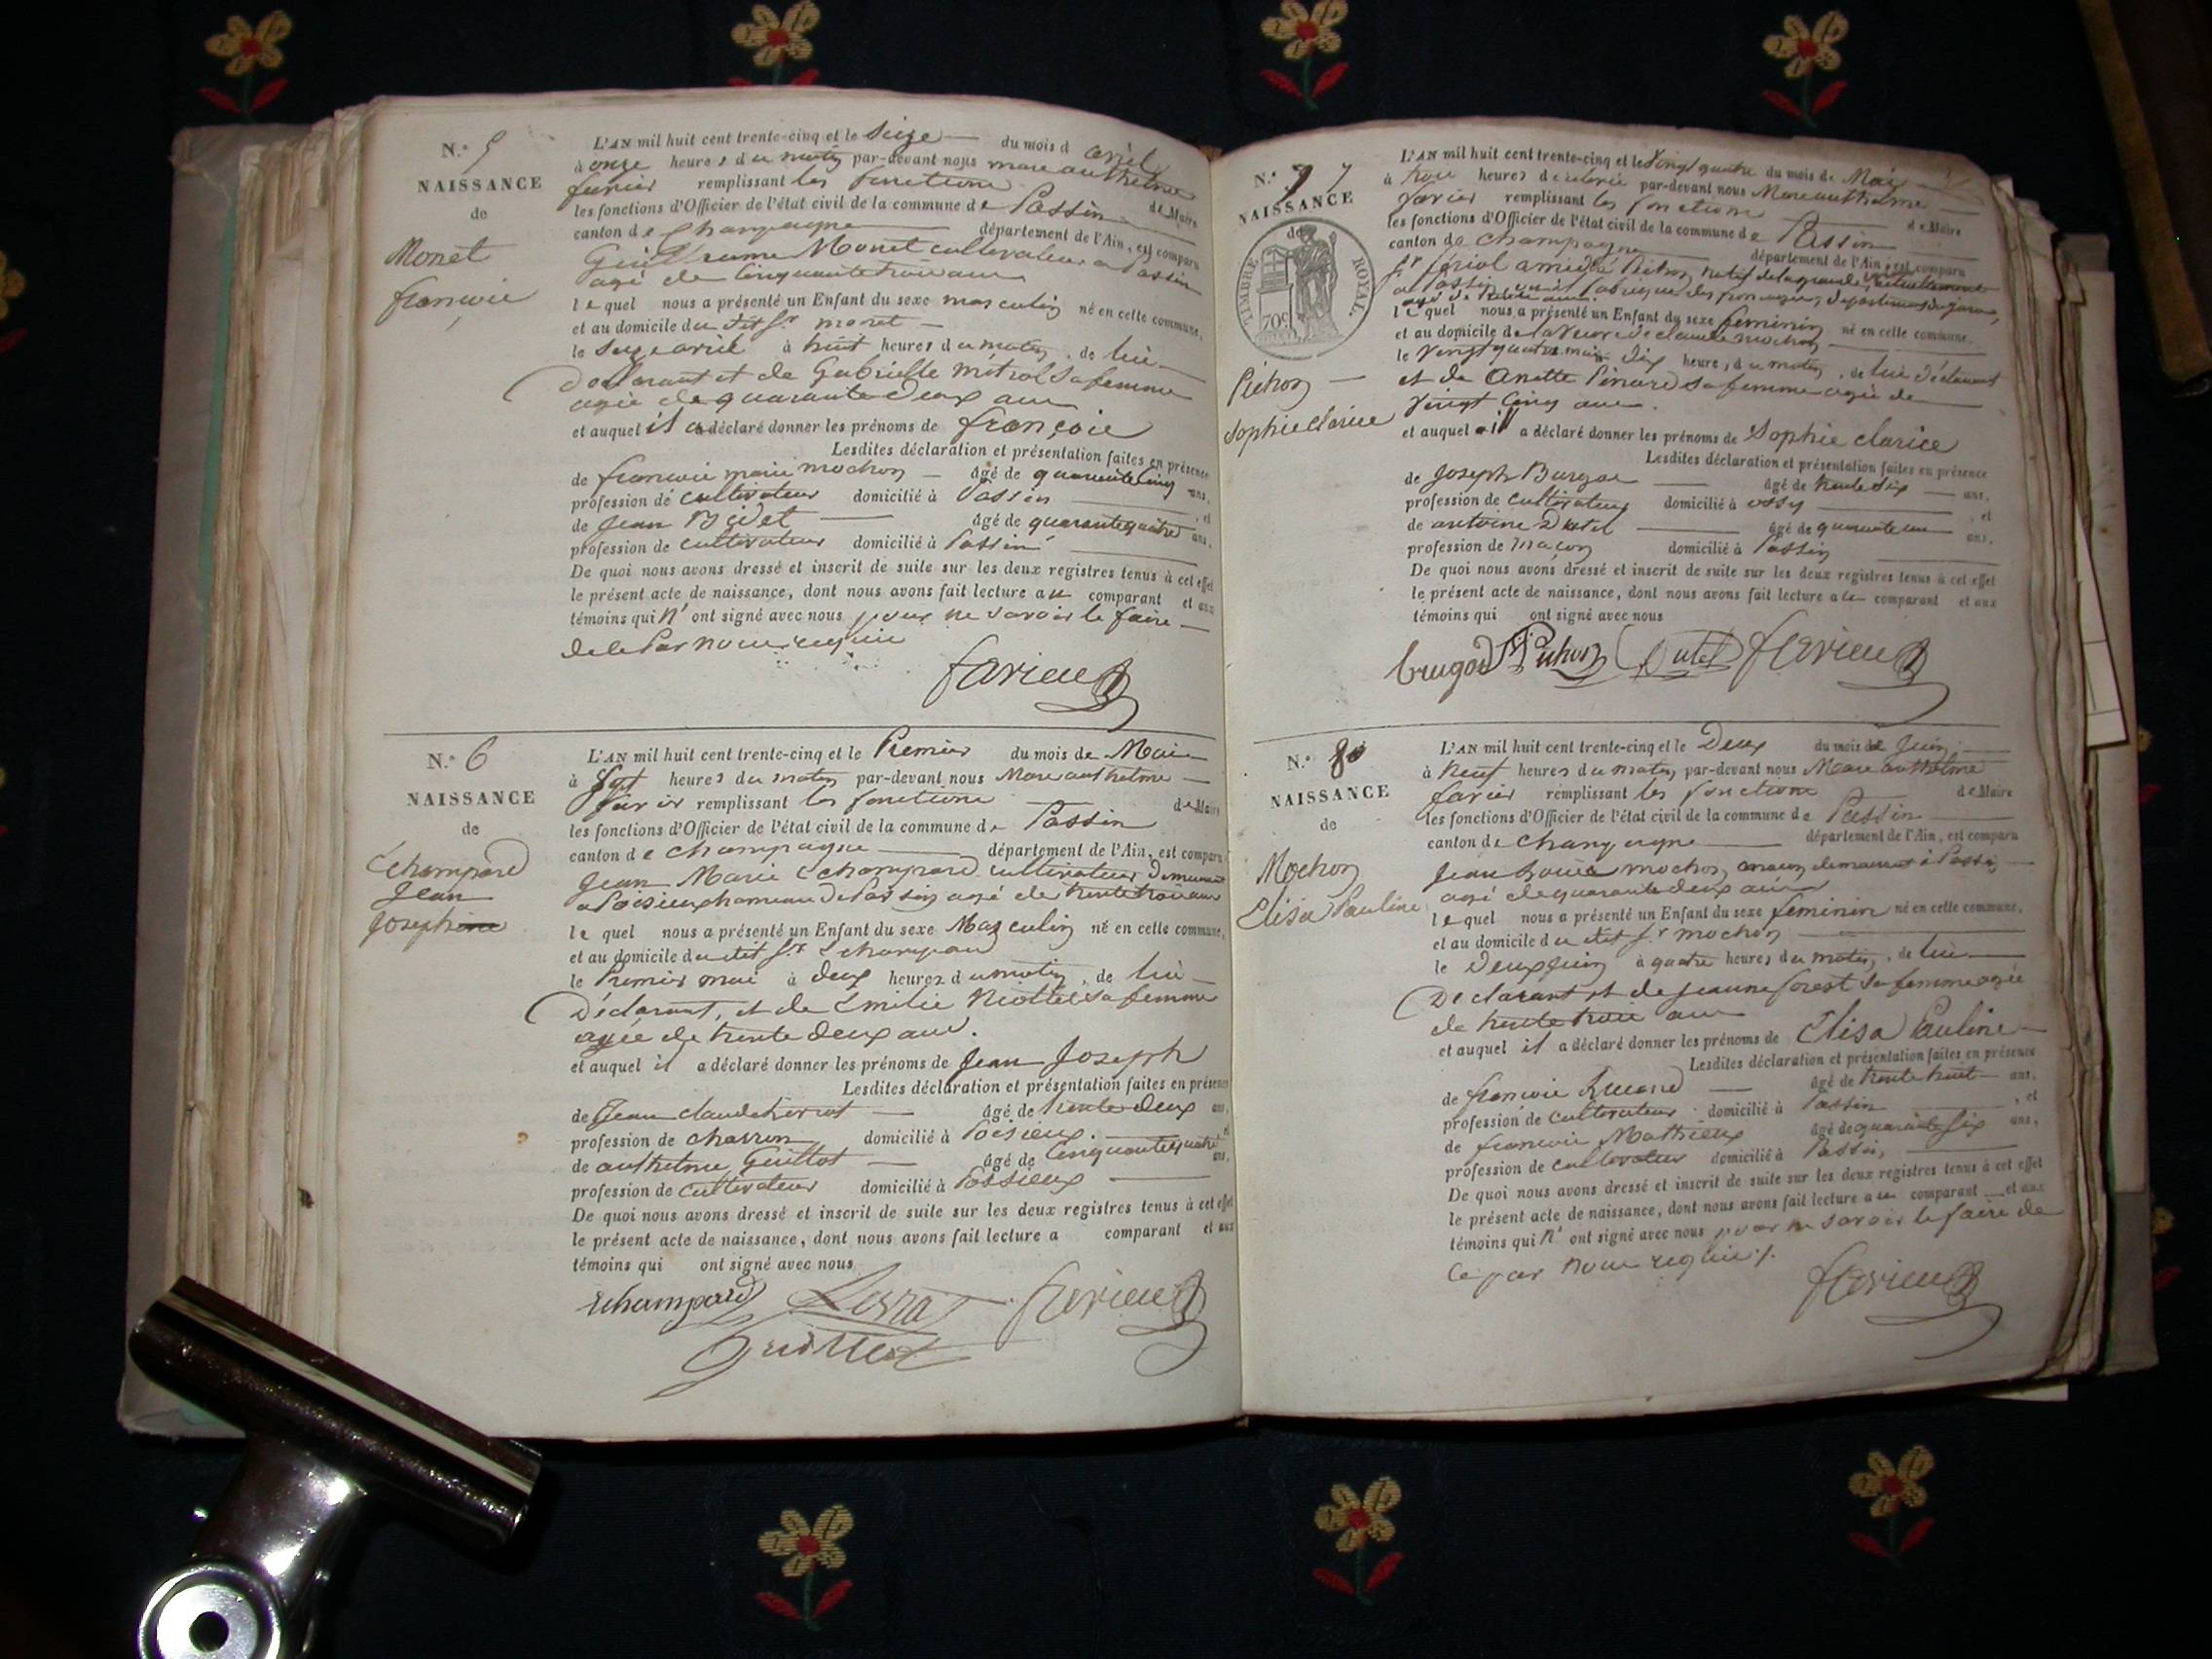 N.° 5
NAISSANCE
de
Monet
françois
L'AN mil huit cent trente-cinq et le Seize du mois d avril
à onze heures du matin par-devant nous marc anthelme
favier remplissant les fonctions de Maire
les fonctions d'Officier de l'état civil de la commune de Passin
canton de Champagne département de l'Ain, est comparu
Guillaume Monet cultivateur a Passin
agé de Cinquante trois ans
lequel nous a présenté un Enfant du sexe masculin né en cette commune,
et au domicile du dit Sr monet
le Seize avril à huit heures du matin, de lui
Déclarant et de Gabrielle mitral Sa femme
agée de quarante Deux ans
et auquel il a déclaré donner les prénoms de françois
Lesdites déclaration et présentation faites en présence
de francois marie mochon âgé de quarante cinq ans,
profession de cultivateur domicilié à Passin et
de Jean Bidet âgé de quarante quatre ans,
profession de cultivateur domicilié à Passin
De quoi nous avons dressé et inscrit de suite sur les deux registres tenus à cet effet
le présent acte de naissance, dont nous avons fait lecture au comparant et aux
témoins qui n' ont signé avec nous pour ne savoir le faire
de ce Par nous requis
favier
N.° 6
NAISSANCE
de
Echampard
Jean
Joseph
L'AN mil huit cent trente-cinq et le Premier du mois de Mai
à Sept heures du matin par-devant nous Marc anthelme
favier remplissant les fonctions de Maire
les fonctions d'Officier de l'état civil de la commune de Passin
canton de Champagne département de l'Ain, est comparu
Jean Marie Echampard cultivateur Demeurant
a Poisieux hameau de Passin agé de trente trois ans
lequel nous a présenté un Enfant du sexe Masculin né en cette commune,
et au domicile du dit Sr Echampard
le Premier mai à deux heures du matin, de lui
Déclarant, et de Emilie Sa femme
agée de trente deux ans.
et auquel il a déclaré donner les prénoms de Jean Joseph
Lesdites déclaration et présentation faites en présence
de Jean claude âgé de trente Deux ans,
profession de charron domicilié à Poisieux. et
de anthelme Guillot âgé de Cinquante quatre ans,
profession de Cultivateur domicilié à Possieux
De quoi nous avons dressé et inscrit de suite sur les deux registres tenus à cet effet
le présent acte de naissance, dont nous avons fait lecture a comparant et aux
témoins qui ont signé avec nous
Echampard favier
Guillot
N.° 7
NAISSANCE
de
TIMBRE ROYAL.
70c
Pichon
Sophie Clarice
L'AN mil huit cent trente-cinq et le Vingt quatre du mois de Mai
à trois heures de relevée par-devant nous Marc anthelme
favier remplissant les fonctions de Maire
les fonctions d'Officier de l'état civil de la commune de Passin
canton de Champagne département de l'Ain, est comparu
Sr fériol amédé Pichon natif de la grande
agé de trente ans. département du Jura,
lequel nous a présenté un Enfant du sexe feminin né en cette commune,
et au domicile de la Veuve de claude mochon
le Vingt quatre mai dix heures du matin, de lui déclarant
et de Anette Pinard sa femme agée de
Vingt Cinq ans.
et auquel il a déclaré donner les prénoms de Sophie clarice
Lesdites déclaration et présentation faites en présence
de Joseph âgé de trente Six ans,
profession de cultivateur domicilié à ossy et
de antoine Dutel âgé de quarante un ans,
profession de maçon domicilié à Passin
De quoi nous avons dressé et inscrit de suite sur les deux registres tenus à cet effet
le présent acte de naissance, dont nous avons fait lecture au comparant et aux
témoins qui ont signé avec nous
Pichon Dutel favier
N.° 8
NAISSANCE
de
Mochon
Elisa Pauline
L'AN mil huit cent trente-cinq et le Deux du mois de Juin
à Neuf heures du matin, par-devant nous Marc anthelme
favier remplissant les fonctions de Maire
les fonctions d'Officier de l'état civil de la commune de Passin
canton de Champagne département de l'Ain, est comparu
Jean Louis mochon, maçon demeurant à Passin,
agé de quarante deux ans
lequel nous a présenté un Enfant du sexe feminin né en cette commune,
et au domicile du dit Sr mochon
le Deux Juin à quatre heures du matin, de lui
Déclarant et de Jeanne forest Sa femme agée
de trente trois ans
et auquel il a déclaré donner les prénoms de Elisa Pauline
Lesdites déclaration et présentation faites en présence
de francois âgé de trente huit ans,
profession de Cultivateur domicilié à Passin, et
de francois Mathieux âgé de quarante Six ans,
profession de cultivateur domicilié à Passin,
De quoi nous avons dressé et inscrit de suite sur les deux registres tenus à cet effet
le présent acte de naissance, dont nous avons fait lecture au comparant et aux
témoins qui n' ont signé avec nous pour ne savoir le faire de
ce par nous requis.
favier